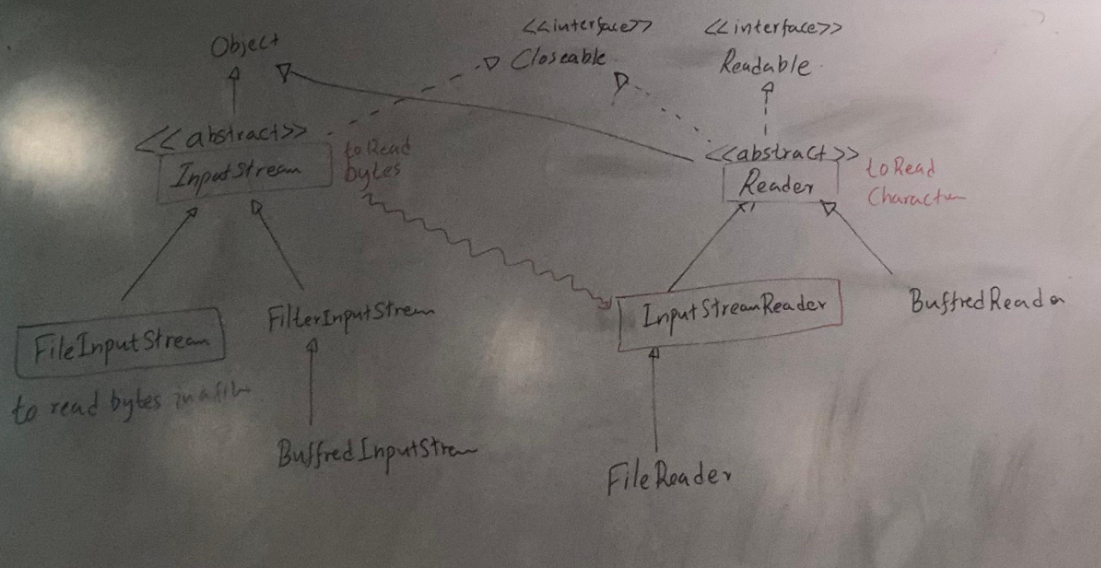 Object
<<interface>>
Closeable
<<interface>>
Readable
<<abstract>>
InputStream
to Read
bytes
<<abstract>>
Reader
to Read
FileInputStream
to read bytes in a file
FilterInputStream
BuffredInputStream
InputStreamReader
BuffredReader
FileReader